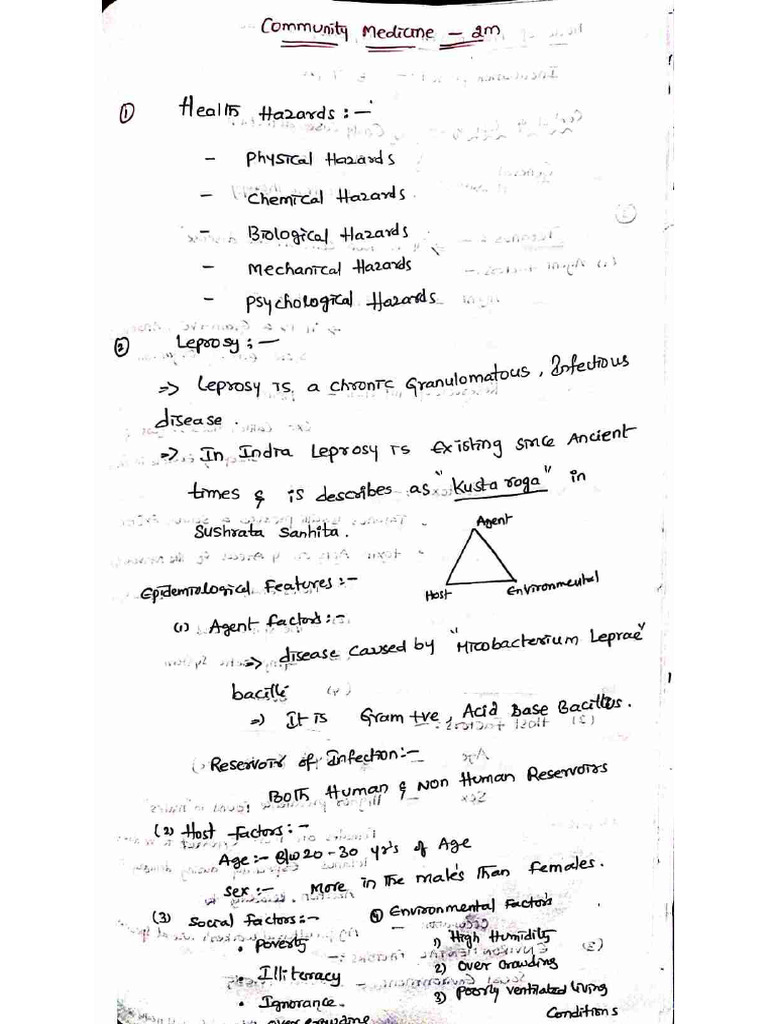 Community Medicine - 2m
① Health Hazards :-
- Physical Hazards
- Chemical Hazards.
- Biological Hazards
- Mechanical Hazards
- Psychological Hazards
② Leprosy :-
=> Leprosy is a chronic Granulomatous, Infectious
disease.
=> In India Leprosy is Existing since Ancient
times & is describes as "Kusta roga" in
Sushrata Sanhita.
Agent
Host
Environmental
Epidemiological Features :-
(1) Agent factors :-
=> disease caused by "Micobacterium Leprae"
bacilli
=> It is Gram +ve, Acid Base Bacillus.
Reservoir of Infection :-
Both Human & Non Human Reservoirs
(2) Host factors :-
Age :- B/w 20-30 yr's of Age
Sex :- More in The male's Than females.
(3) Social factors :-
• Poverty
• Illiteracy
• Ignorance.
• over crowding
④ Environmental Factors
1) High Humidity
2) Over crowding
3) Poorly ventilated living
Conditions